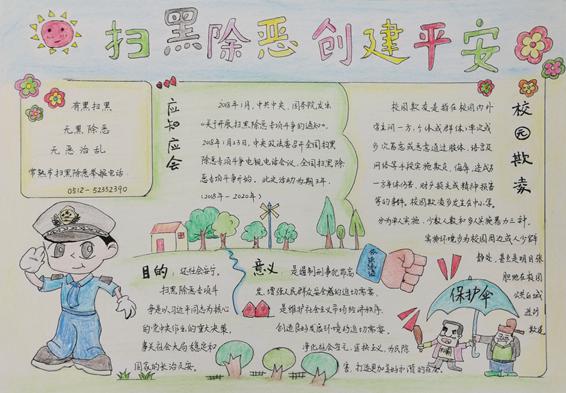 扫黑除恶 创建平安
有黑扫黑
无黑除恶
无恶治乱
常熟市扫黑除恶举报电话
0512-52352390
应知应会
2018年1月,中共中央、国务院发出
《关于开展扫黑除恶专项斗争的通知》。
2018年1月23日,中央政法委召开全国扫黑
除恶专项斗争电视电话会议,全国扫黑除
恶专项斗争开始,此次活动为期3年
(2018年-2020年)
校园欺凌
校园欺凌是指在校园内外
学生间一方,个体或群体,单次或
多次蓄意或恶意通过肢体、语言及
网络等手段实施欺负、侮辱,造成另
一方身体伤害、财产损失或精神损害
等的事件。校园欺凌多发生在中小学。
分为单人实施、少数人
实施环境多为校园周边或人少僻
静处,甚至是明目张
胆地在校园
公共区域
进行
欺凌
目的:还社会安宁。
扫黑除恶专项斗
争是以习近平同志为核心
的党中央作出的重大决策,
事关社会大局稳定和
国家的长治久安。
意义:是遏制刑事犯罪高
发,增强人民群众安全感的迫切需要。
是维护社会公平
创造良好发展环境的迫切需要。
净化社会
害,打造更加美好和谐的
保护伞